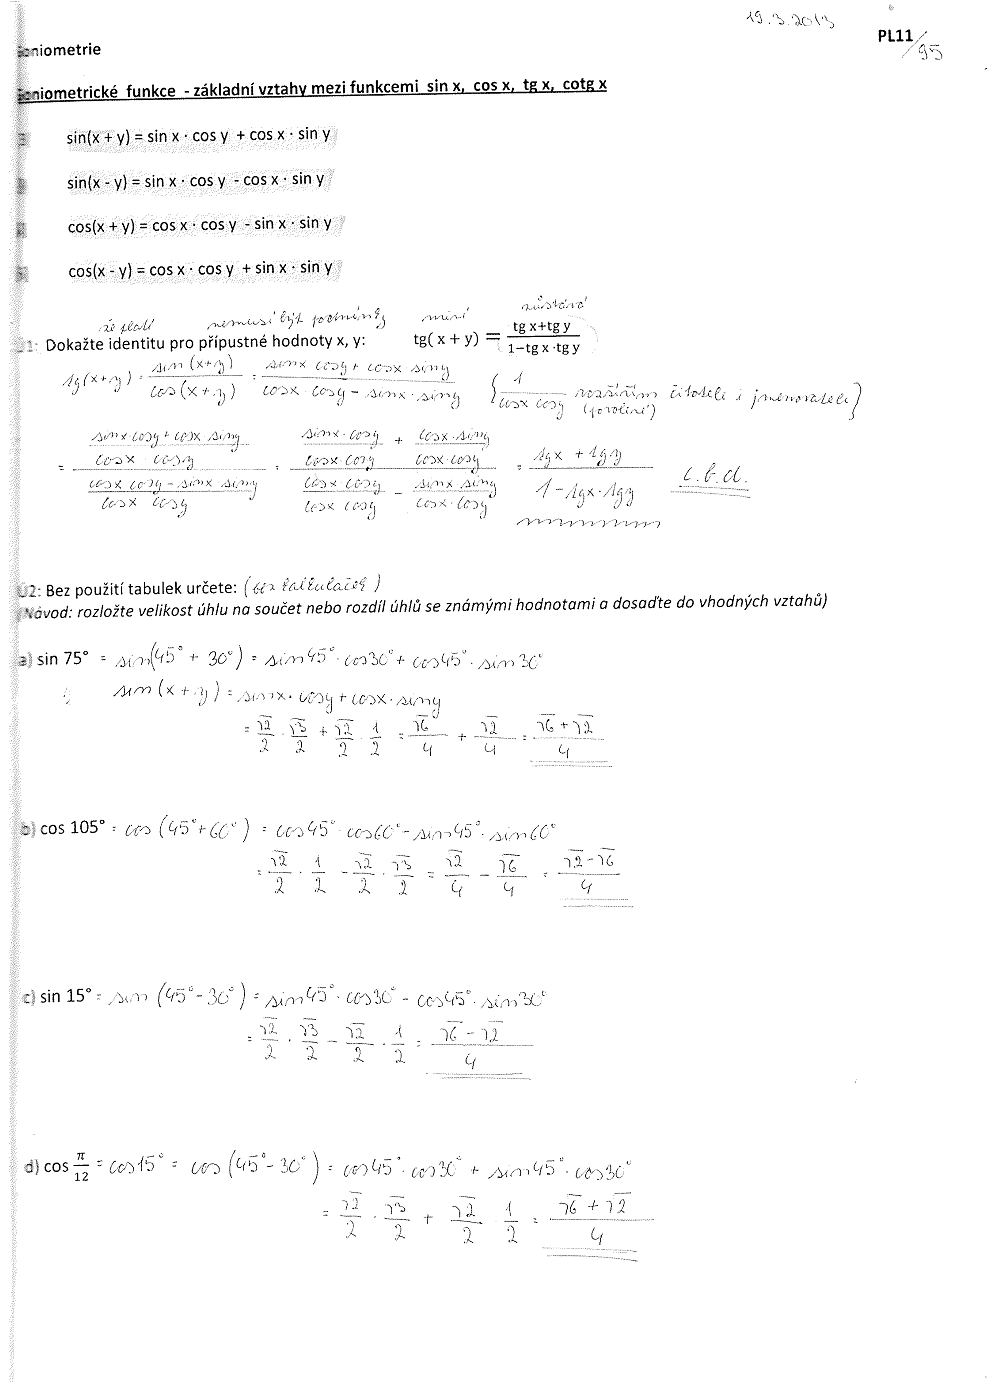 19.3.2013
PL11/95
Goniometrie
Goniometrické funkce - základní vztahy mezi funkcemi sin x, cos x, tg x, cotg x
sin(x + y) = sin x · cos y + cos x · sin y
sin(x - y) = sin x · cos y - cos x · sin y
cos(x + y) = cos x · cos y - sin x · sin y
cos(x - y) = cos x · cos y + sin x · sin y
že platí nemusí být podmínky mění zůstává
U1: Dokažte identitu pro přípustné hodnoty x, y: tg(x + y) = (tg x+tg y)/(1−tg x·tg y)
tg(x+y) = sin(x+y)/cos(x+y) = (sinx cosy + cosx siny)/(cosx · cosy − sinx · siny) {1/(cosx cosy) rozšířím (povolení) čitateli i jmenovateli}
= ((sinx cosy + cosx siny)/(cosx cosy))/((cosx cosy − sinx siny)/(cosx cosy)) = ((sinx·cosy)/(cosx·cosy) + (cosx·siny)/(cosx·cosy))/((cosx·cosy)/(cosx cosy) − (sinx·siny)/(cosx·cosy)) = (tgx + tgy)/(1 − tgx·tgy) c.b.d.
U2: Bez použití tabulek určete: (bez kalkulaček)
(Návod: rozložte velikost úhlu na součet nebo rozdíl úhlů se známými hodnotami a dosaďte do vhodných vztahů)
a) sin 75° = sin(45° + 30°) = sin45° · cos30° + cos45° · sin30°
sin(x + y) = sinx · cosy + cosx · siny
= √2/2 · √3/2 + √2/2 · 1/2 = √6/4 + √2/4 = (√6 + √2)/4
b) cos 105° = cos(45° + 60°) = cos45° · cos60° − sin45° · sin60°
= √2/2 · 1/2 − √2/2 · √3/2 = √2/4 − √6/4 = (√2 − √6)/4
c) sin 15° = sin(45° − 30°) = sin45° · cos30° − cos45° · sin30°
= √2/2 · √3/2 − √2/2 · 1/2 = (√6 − √2)/4
d) cos π/12 = cos15° = cos(45° − 30°) = cos45° · cos30° + sin45° · cos30°
= √2/2 · √3/2 + √2/2 · 1/2 = (√6 + √2)/4